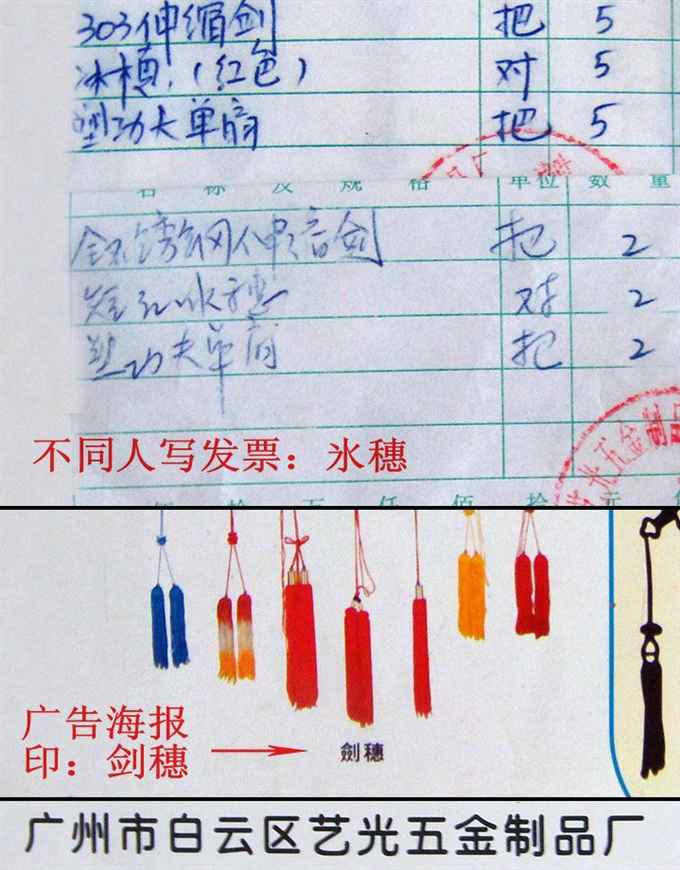 303伸缩剑 把 5
冰穗（红色） 对 5
塑功夫单扇 把 5
名称及规格 单位 数量
全不锈钢伸缩剑 把 2
短红冰穗 对 2
塑功夫单扇 把 2
不同人写发票：氷穗
五金制品
万 仟 佰 拾 元
广告海报
印：剑穗
劍穗
广州市白云区艺光五金制品厂